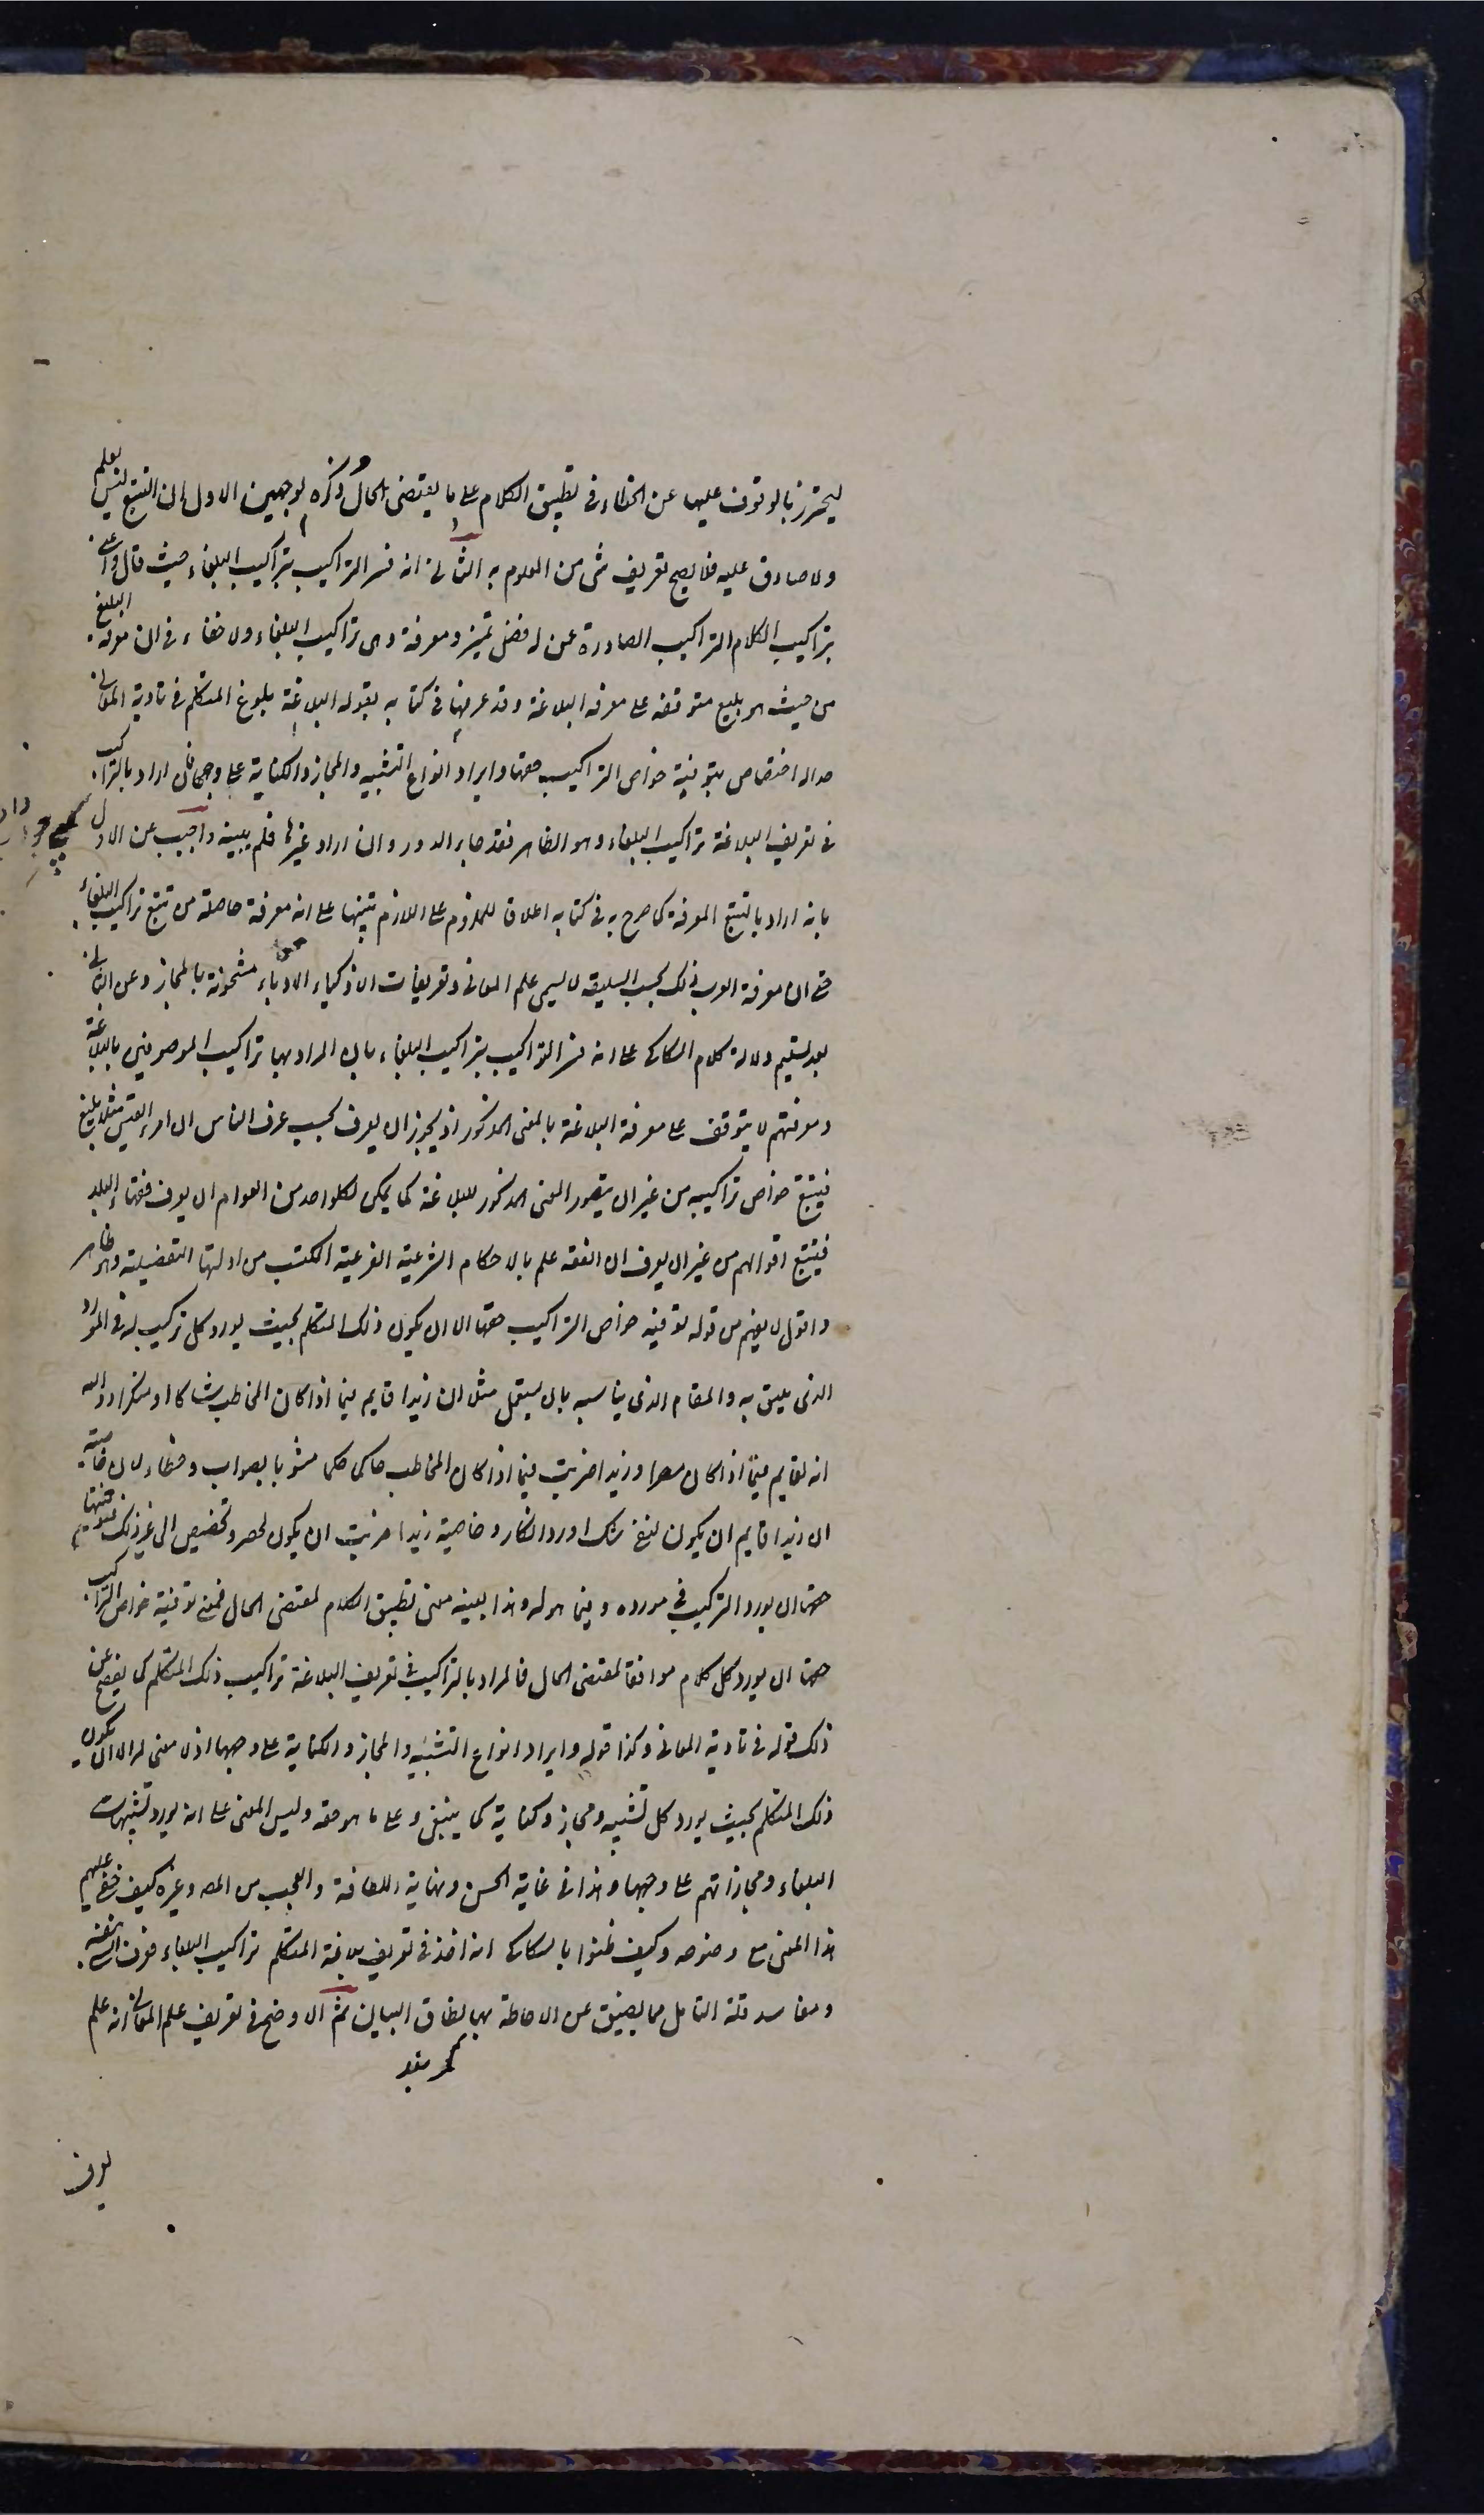 ليحترز بالوقوف عليها عن الخطاء في تطبيق الكلام على ما يقتضى الحال ذكره لوجهين الاول ان التتبع ليس بعلم
ولا صادق عليه فلا يصح تعريف شئ من العلوم به الثاني انه فسر التراكيب بتراكيب البلغاء حيث قال واعنى
بتراكيب الكلام التراكيب الصادرة عن له فضل تميز ومعرفة وهى تراكيب البلغاء ولا خفاء في ان معرفة البليغ
من حيث هو بليغ متوقفة على معرفة البلاغة وقد عرفها في كتابه بقوله البلاغة بلوغ المتكلم في تادية المعاني
حدا له اختصاص بتوفية خواص التراكيب حقها وايراد انواع التشبيه والمجاز والكناية على وجهها فان اراد بالتراكيب
في تعريف البلاغة تراكيب البلغاء وهو الظاهر فقد جاء الدور وان اراد غيرها فلم يبينه واجيب عن الاول
بانه اراد بالتتبع المعرفة كما صرح به في كتابه اطلاقا للملزوم على اللازم تنبيها على انه معرفة حاصلة من تتبع تراكيب البلغاء
حتى ان معرفة العرب ذلك بحسب السليقة لا يسمى علم المعاني وتعريفات الاذكياء الادباء مشحونة بالمجاز وعن الثاني
بعد تسليم دلالة كلام السكاكى على انه فسر التراكيب بتراكيب البلغاء بان المراد بها تراكيب الموصوفين بالبلاغة
ومعرفتهم لا يتوقف على معرفة البلاغة بالمعنى المذكور اذ يجوز ان يعرف بحسب عرف الناس ان امرء القيس مثلا بليغ
فيتتبع خواص تراكيبه من غير ان يتصور المعنى المذكور للبلاغة كما يمكن لكل واحد من العوام ان يعرف فقهاء البلد
فيتتبع اقوالهم من غير ان يعرف ان الفقه علم بالاحكام الشرعية الفرعية المكتسب من ادلتها التفضيلية وهو ظاهر
واقول لا يفهم من قوله توفية خواص التراكيب حقها الا ان يكون ذلك المتكلم بحيث يورد كل تركيب له في المورد
الذى يليق به والمقام الذى يناسبه بان يستعمل مثل ان زيدا قايم فيما اذا كان المخاطب شاكا او منكرا ووالله
انه لقايم فيما اذا كان مصرا وزيدا ضربت فيما اذا كان المخاطب حاكما حكما مشوبا بصواب وخطاء لان خاصية
ان زيدا قايم ان يكون لنفى شك او رد انكار وخاصية زيدا ضربت ان يكون لحصر وتخصيص الى غير ذلك فتوفيتها
حقها ان يورد التركيب في مورده وفيما هو له وهذا بعينه معنى تطبيق الكلام لمقتضى الحال فمعنى توفية خواص التراكيب
حقها ان يورد كل كلام موافقا لمقتضى الحال فالمراد بالتراكيب في تعريف البلاغة تراكيب ذلك المتكلم كما يفصح عن
ذلك قوله في تادية المعاني وكذا قوله وايراد انواع التشبيه والمجاز والكناية على وجهها اذ لا معنى له الا ان يكون
ذلك المتكلم بحيث يورد كل تشبيه ومجاز وكناية كما ينبغى وعلى ما هو حقه وليس المعنى على انه يورد تشبيهات
البلغاء ومجازاتهم على وجهها وهذا في غاية الحسن ونهاية اللطافة والعجب من المص وغيره كيف خفى عليهم
هذا المعنى مع وضوحه وكيف ظنوا بالسكاكى انه اخذ في تعريف بلاغة المتكلم تراكيب البلغاء فعرف الشئ بنفسه
ومفاسد قلة التامل مما يضيق عن الاحاطة بها نطاق البيان ثم الاوضح في تعريف علم المعاني انه علم
يعرف